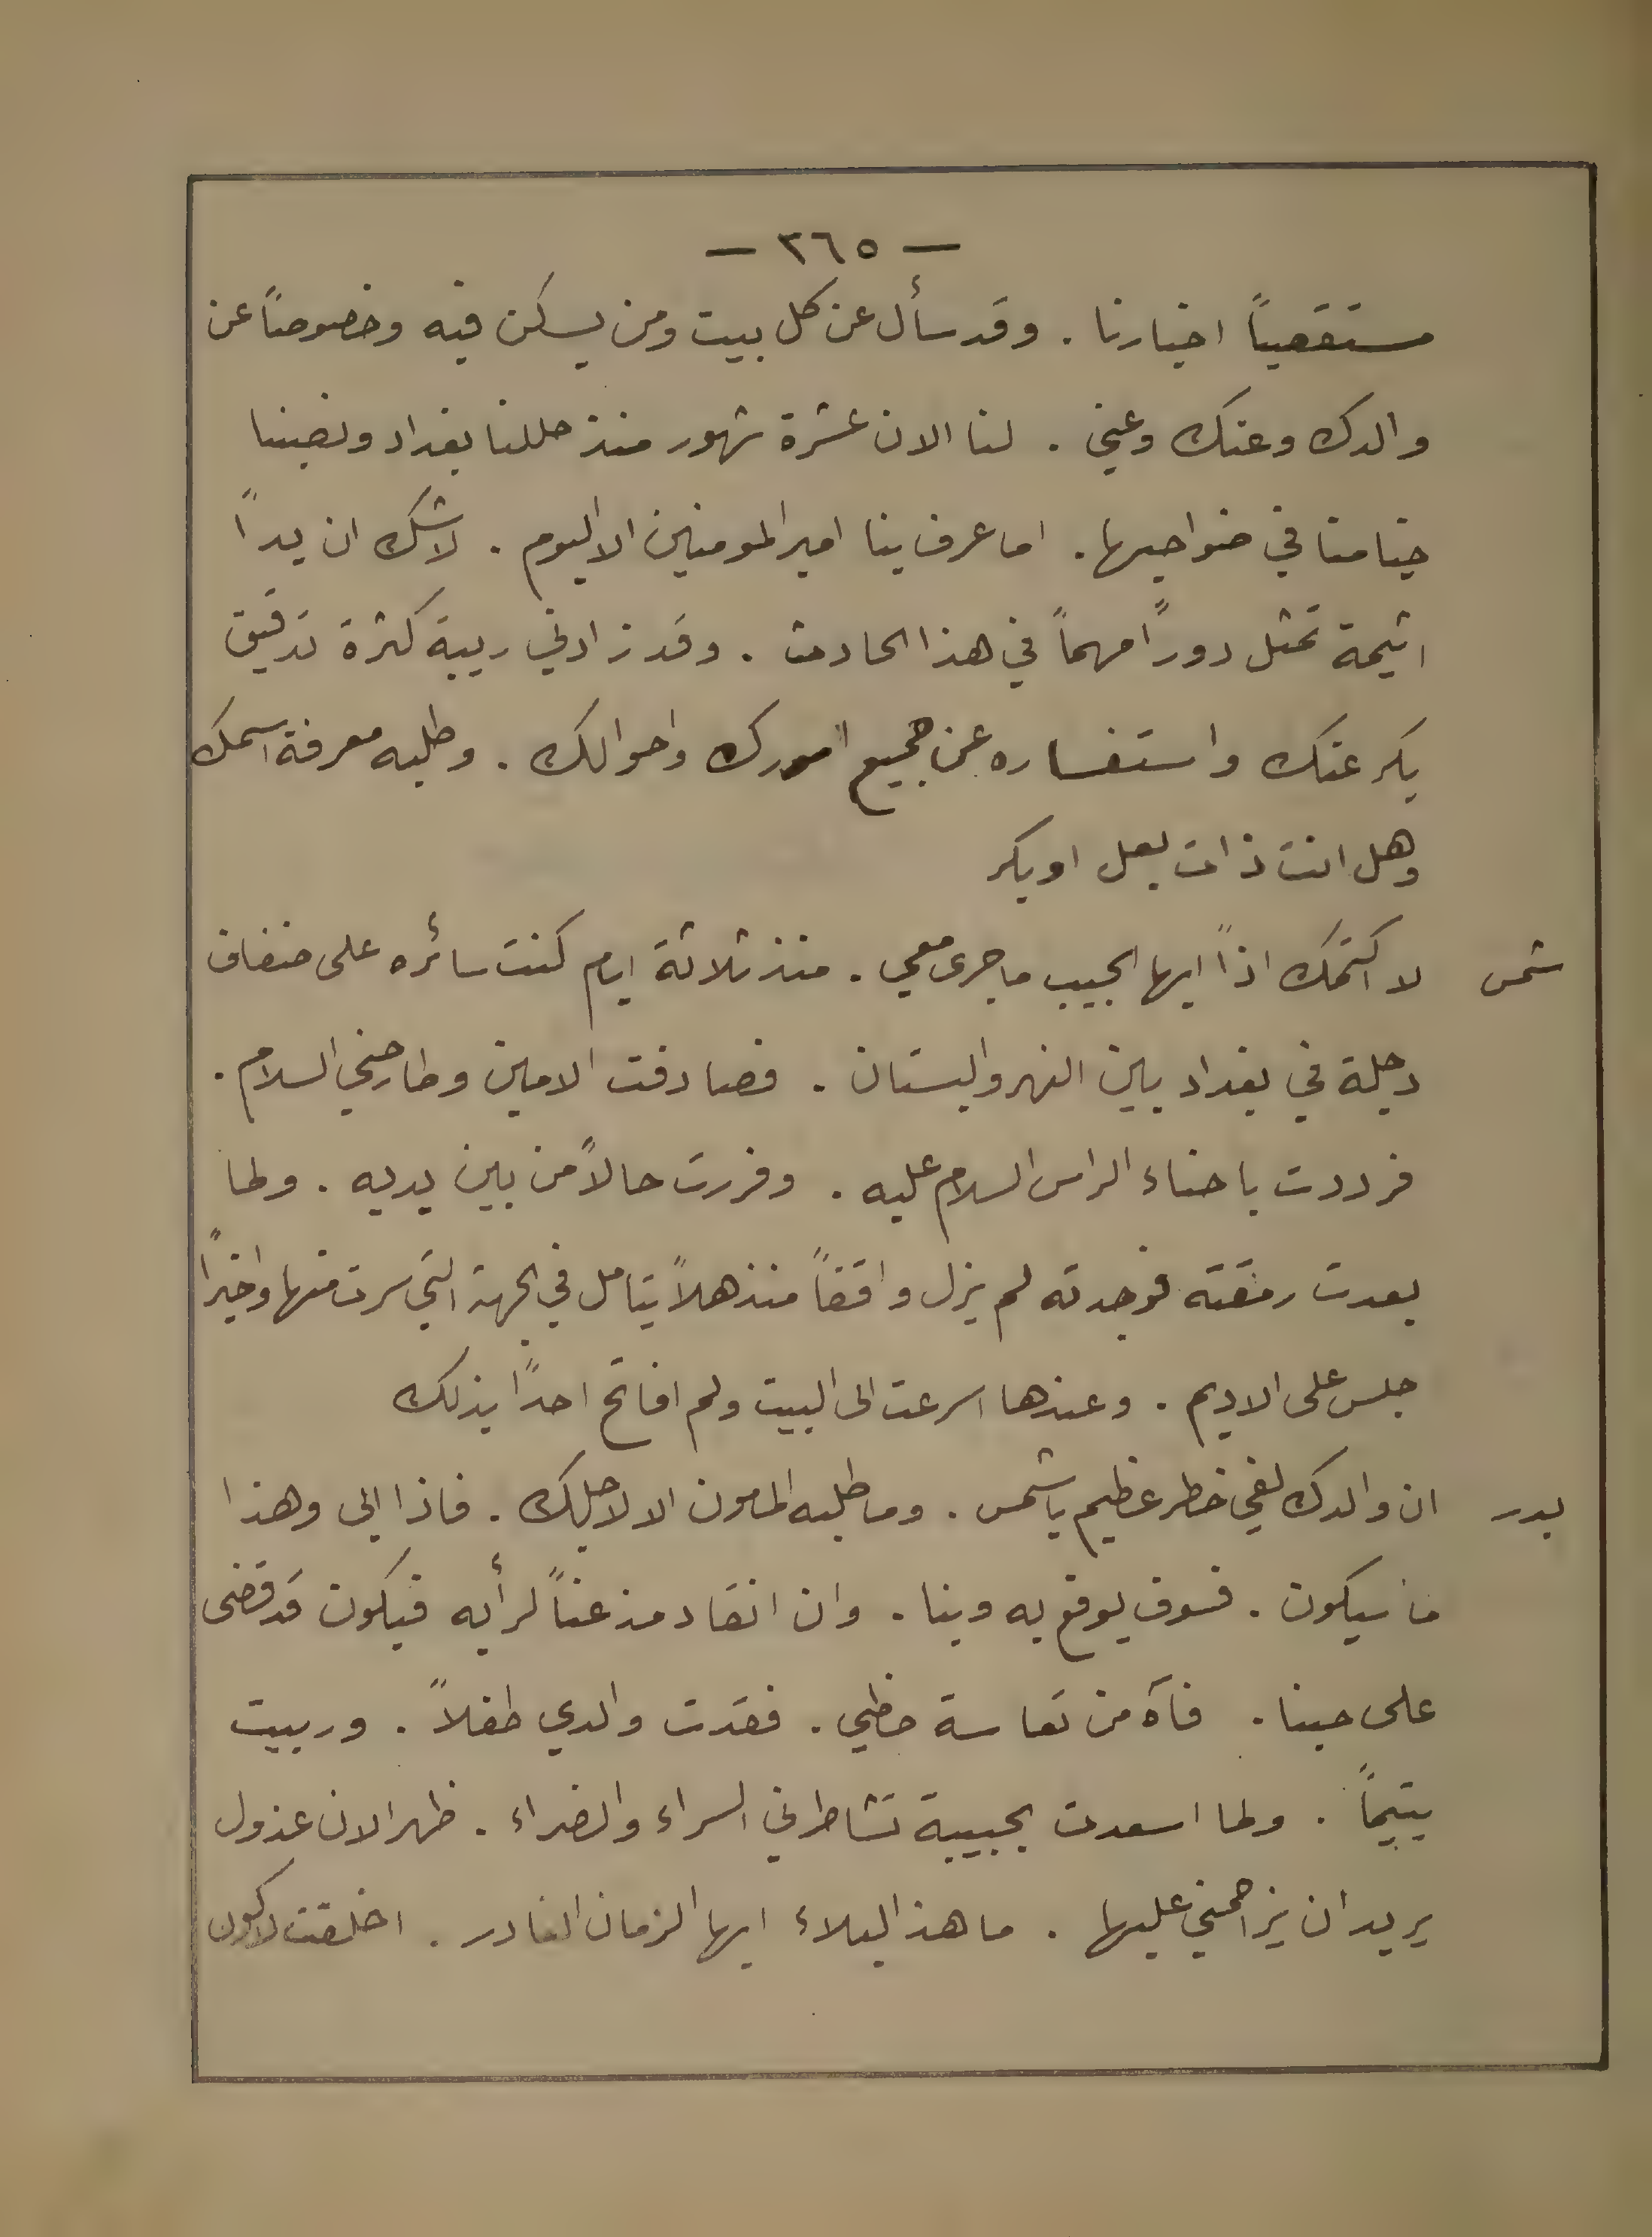 — ٢٦٥ —
مستقصياً اخبارنا . وقد سأل عن كل بيت ومن يسكن فيه وخصوصاً عن
والدك وعنك وعني . لنا الان عشرة شهور منذ حللنا بغداد ونصبنا
خيامنا في ضواحيها . اما عرف بنا امير المومنين الا اليوم . لاشك ان يداً
اثيمة تمثل دوراً مهماً في هذا الحادث . وقد زادني ريبة كثرة تدقيق
بكر عنك واستفساره عن جميع امورك واحوالك . وطلبه معرفة اسمك
وهل انت ذات بعل او بكر
شمس لا اكتمك اذاً ايها الحبيب ما جرى معي . منذ ثلاثة ايام كنت سائره على ضفاف
دجلة في بغداد بين النهر والبستان . فصادفت الامين وطارحني السلام .
فرددت باحناء الراس السلام عليه . وفررت حالاً من بين يديه . ولما
بعدت رمقته فوجدته لم يزل واقفاً منذهلاً يتامل في الجهة التي سرت منها واخيراً
جلس على الاديم . وعندها اسرعت الى البيت ولم افاتح احداً بذلك
بدر ان والدك لفي خطر عظيم يا شمس . وما طلبه المامون الا لاجلك . فاذا ابى وهذا
ما سيكون . فسوف يوقع به وبنا . وان انقاد مذعناً لرأيه فيكون قد قضى
على حبنا . فآه من تعاسة حظي . فقدت والدي طفلاً . وربيت
يتيماً . ولما اسعدت بحبيبة تشاطرني السراء والضراء . ظهر الان عذول
يريد ان يزاحمني عليها . ما هذ البلاء ايها الزمان الغادر . اخلقت لاكون